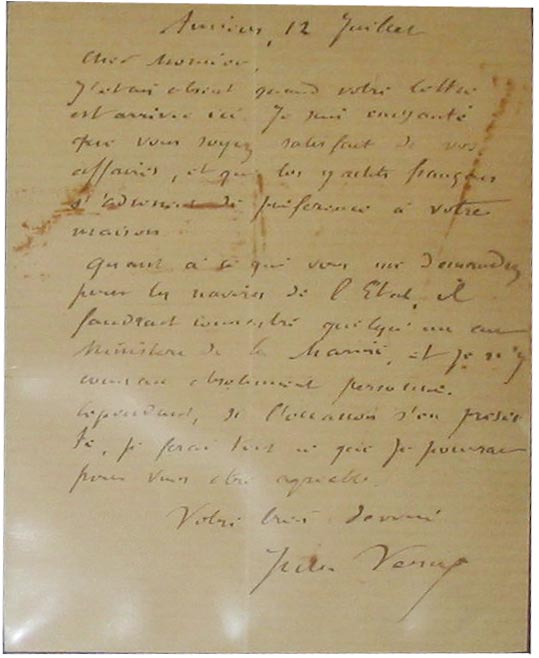 Amiens, 12 Juillet
Cher Monsieur,
J'étais absent quand votre lettre
est arrivée ici. Je suis enchanté
que vous soyez satisfait de vos
affaires, et que les yachts français
s'adressent de préférence à votre
maison.
Quant à ce que vous me demandez
pour les navires de l'Etat, il
faudrait connaître quelqu'un au
Ministère de la Marine, et je n'y
connais absolument personne.
Cependant, si l'occasion s'en présen
te, je ferai tout ce que je pourrai
pour vous être agréable.
Votre très dévoué
Jules Verne